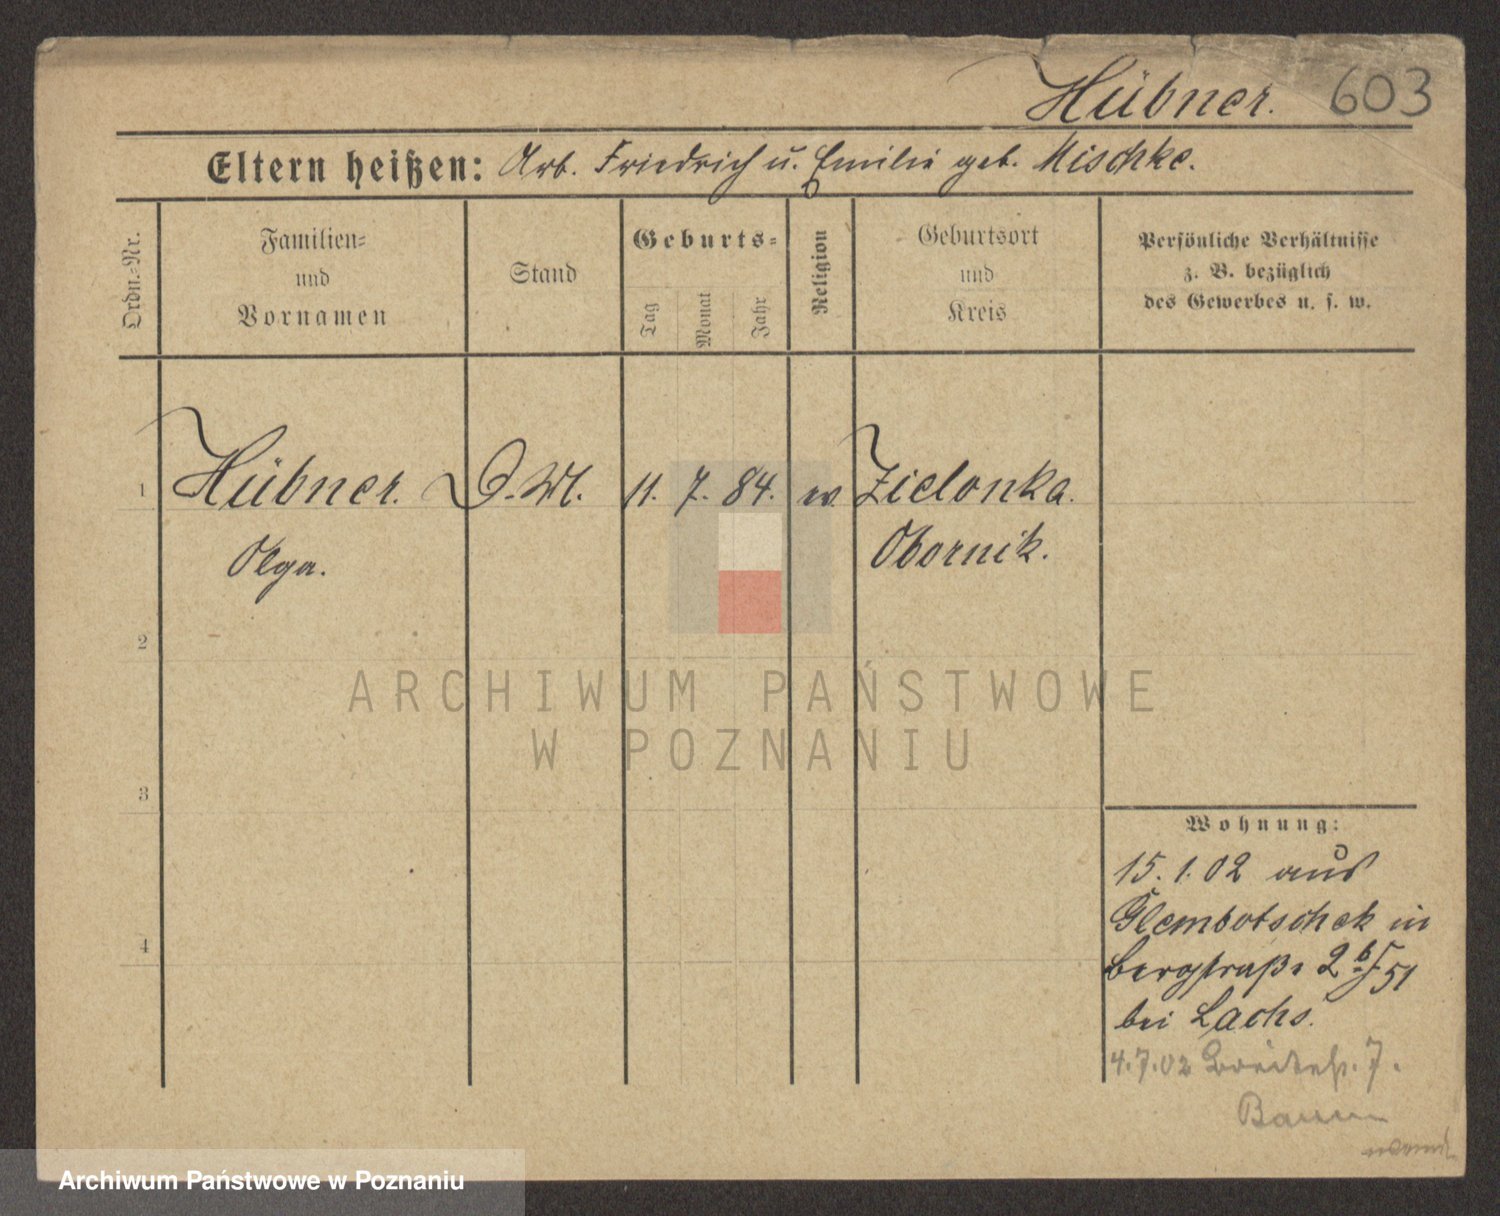 Hübner. 603
Eltern heißen: Arb. Friedrich u. Emilie geb. Mischke.
Ordn.-Nr.
Familien-
und
Vornamen
Stand
Geburts-
Tag
Monat
Jahr
Religion
Geburtsort
und
Kreis
Persönliche Verhältnisse
z. B. bezüglich
des Gewerbes u. s. w.
1 Hübner. D. M. 11. 7. 84. ev. Zielonka.
Olga. Obornik.
2
3
4
Wohnung:
15. 1. 02 aus
Glembotschek in
Bergstraße 2 b
bei Lachs.
4.7.02 Breitestr. 7.
Baum
ARCHIWUM PAŃSTWOWE
W POZNANIU
Archiwum Państwowe w Poznaniu